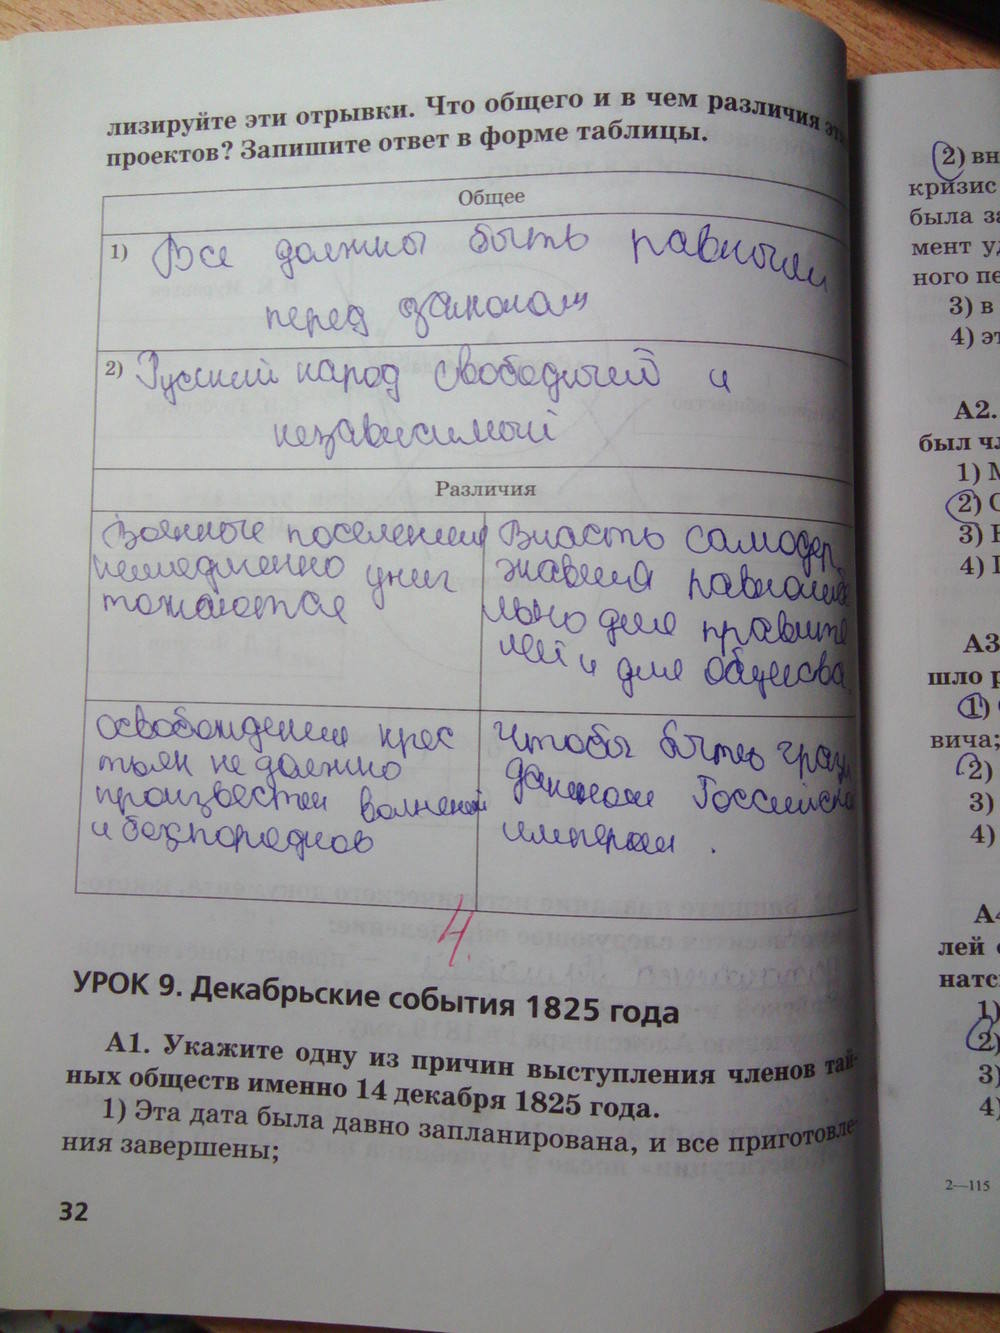 лизируйте эти отрывки. Что общего и в чем различия
проектов? Запишите ответ в форме таблицы.
Общее
1) Все должны быть равными
перед законом
2) Русский народ свободный и
независимый
Различия
Военные поселения
немедленно унич
тожаются
Власть самодер
жавия равноме
льно для правите
лей и для общества.
Освобождения крес
тьян не должно
произвести волнений
и безпорядков
Чтобы быть граж
данином Российско
империи .
4.
УРОК 9. Декабрьские события 1825 года
А1. Укажите одну из причин выступления членов тай-
ных обществ именно 14 декабря 1825 года.
1) Эта дата была давно запланирована, и все приготовле-
ния завершены;
32
2)
кризис
была
мент
ного
3) в
4)
А2.
был
1)
2)
3)
4)
А3
шло
1)
вича;
2)
3)
4)
А4
лей
1)
2)
3)
4)
2—115